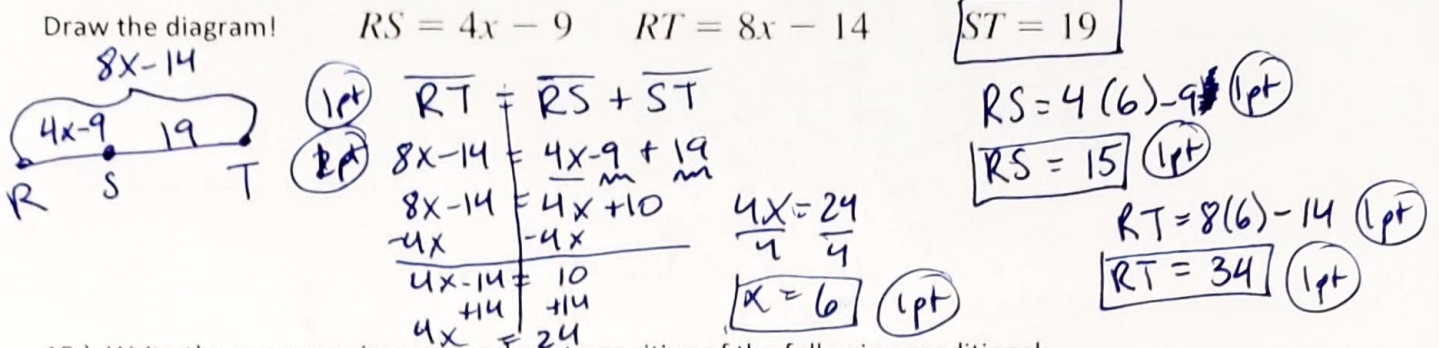 Draw the diagram! RS = 4x − 9 RT = 8x − 14 ST = 19
8x-14
4x-9 19
R S T
1pt RT = RS + ST
8x-14 = 4x-9 + 19
8x-14 = 4x+10
-4x -4x
4x-14 = 10
+14 +14
4x = 24
4x = 24
4 4
x = 6 1pt
RS = 4(6)-9 1pt
RS = 15 1pt
RT = 8(6)-14 1pt
RT = 34 1pt